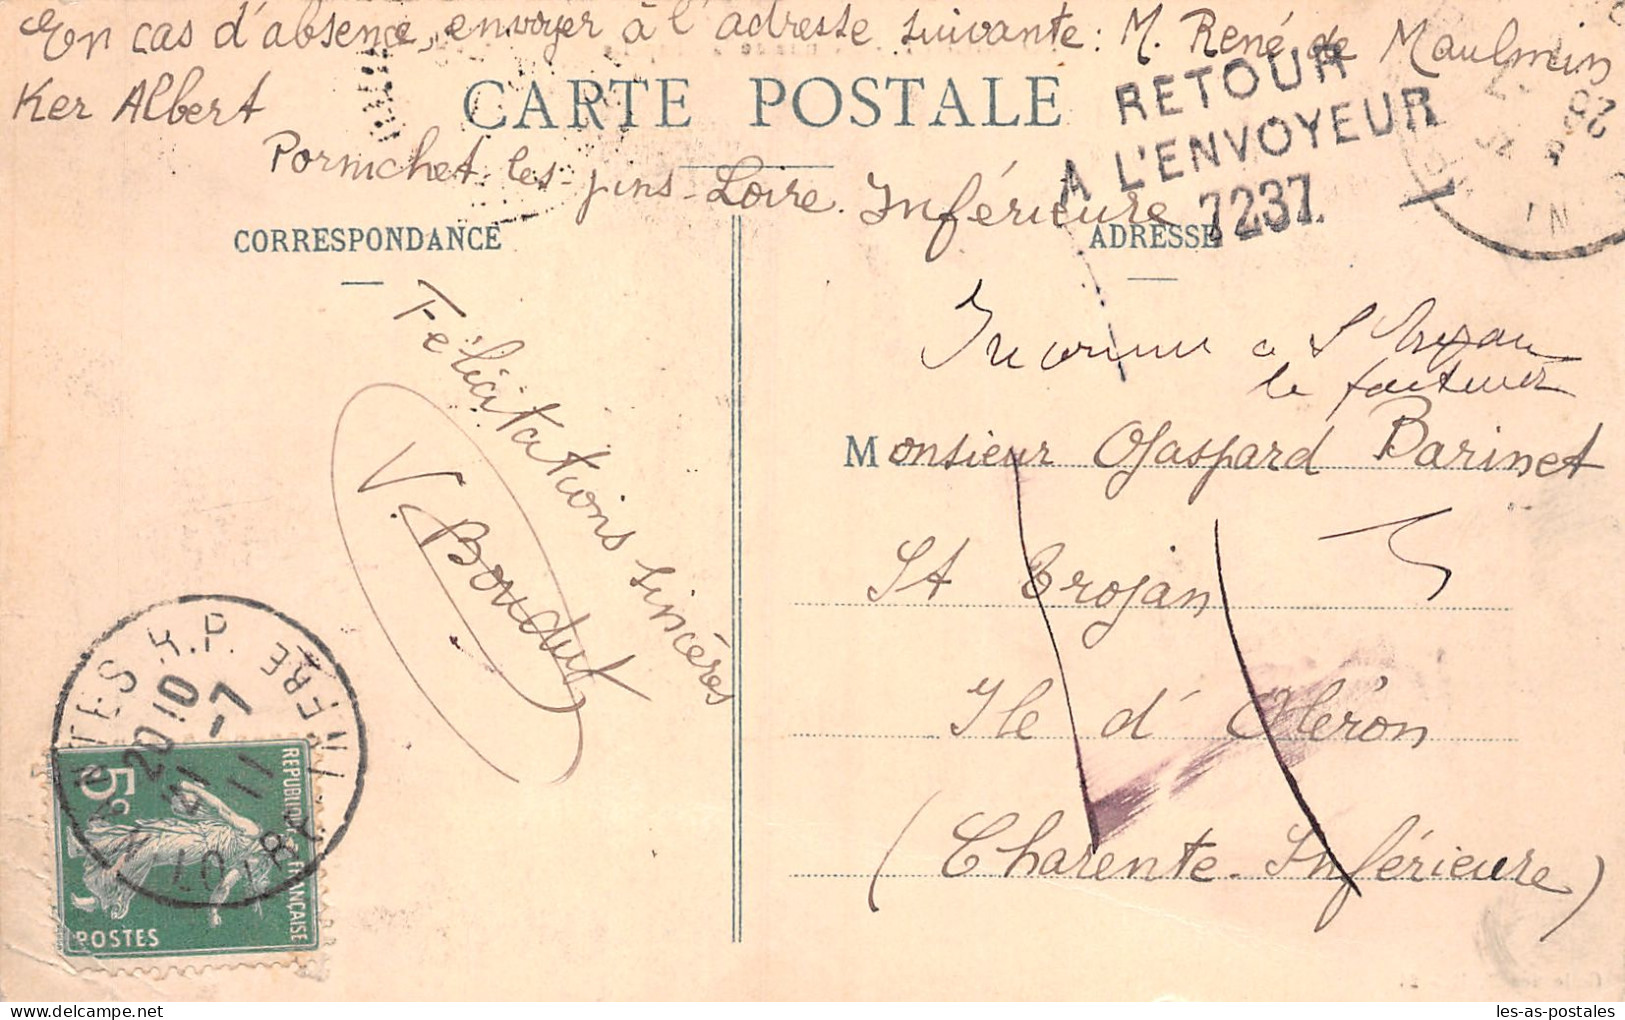 En cas d'absence, envoyer à l'adresse suivante: M. René de Maulmin
Ker Albert
CARTE POSTALE
RETOUR
A L'ENVOYEUR
7237.
Pornichet-les-pins-Loire Inférieure
CORRESPONDANCE
ADRESSE
Félicitations sincères
V. Boudet
Inconnu a St Trojan
le facteur
Monsieur Gaspard Barinet
St Trojan
Ile d'Oléron
(Charente-Inférieure)
NANTES R.P.
20 10
21 -7
11
LOIRE INFERE
5c
REPUBLIQUE FRANÇAISE
POSTES
les-as-postales